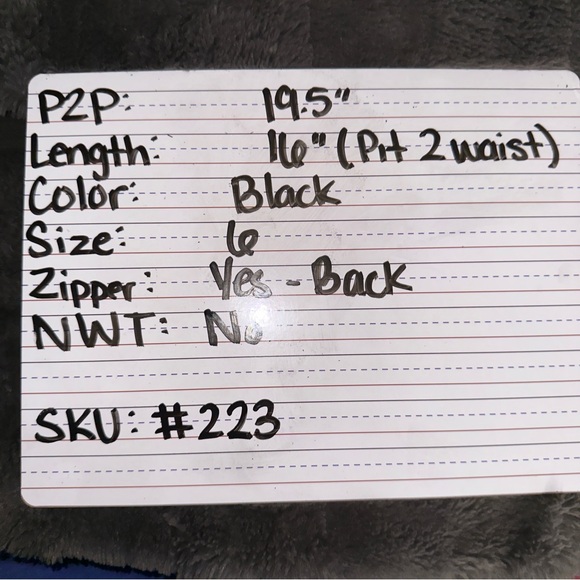 P2P: 19.5"
Length: 16" (Pit 2 waist)
Color: Black
Size: 6
Zipper: Yes - Back
NWT: No
SKU: #223